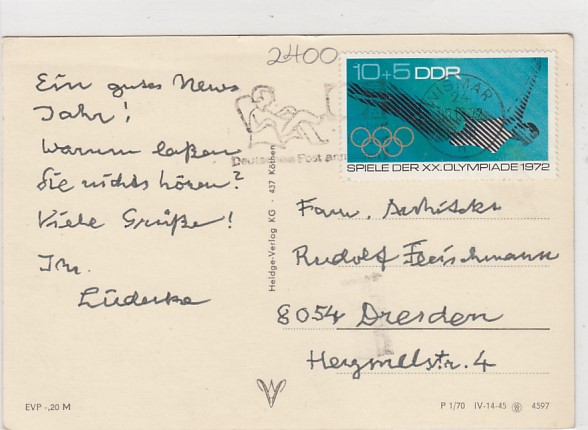 2400
10+5 DDR
WISMAR
SPIELE DER XX. OLYMPIADE 1972
Deutsche Post
Ein gutes Neues
Jahr!
Warum laßen
Sie nichts hören?
Viele Grüße!
Ihr
Lüderke
Heldge-Verlag KG · 437 Köthen
Fam. Architekt
Rudolf Fleischmann
8054 Dresden
Hegmelstr. 4
EVP -,20 M
P 1/70 IV-14-45 4597